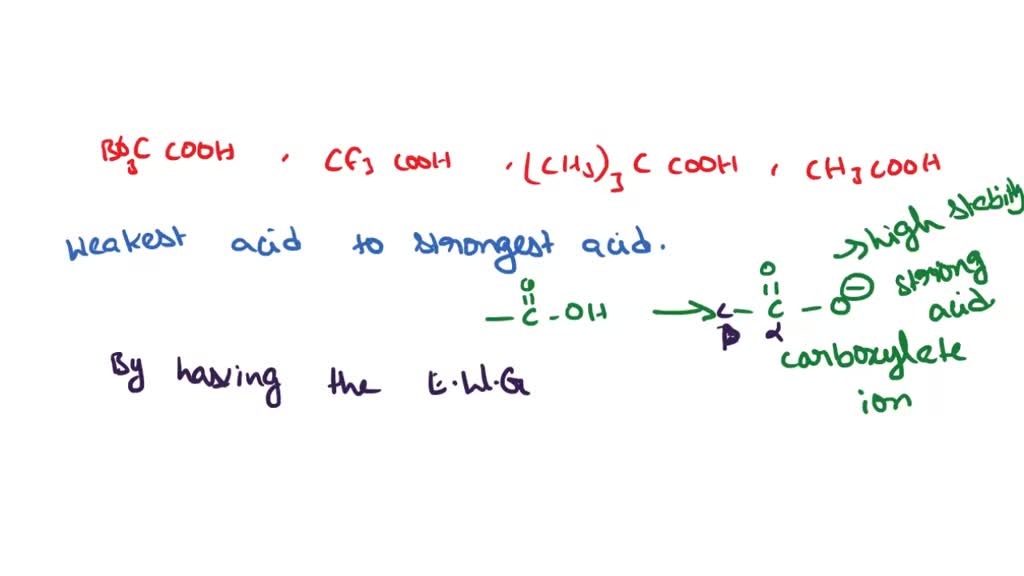 Br₃C COOH , CF₃ COOH , (CH₃)₃ C COOH , CH₃COOH
weakest acid to strongest acid.
→ high stebility
strong
acid
O
O
– C – OH → C – C – O⊖
β α
carboxylate
ion
By having the E.W.G